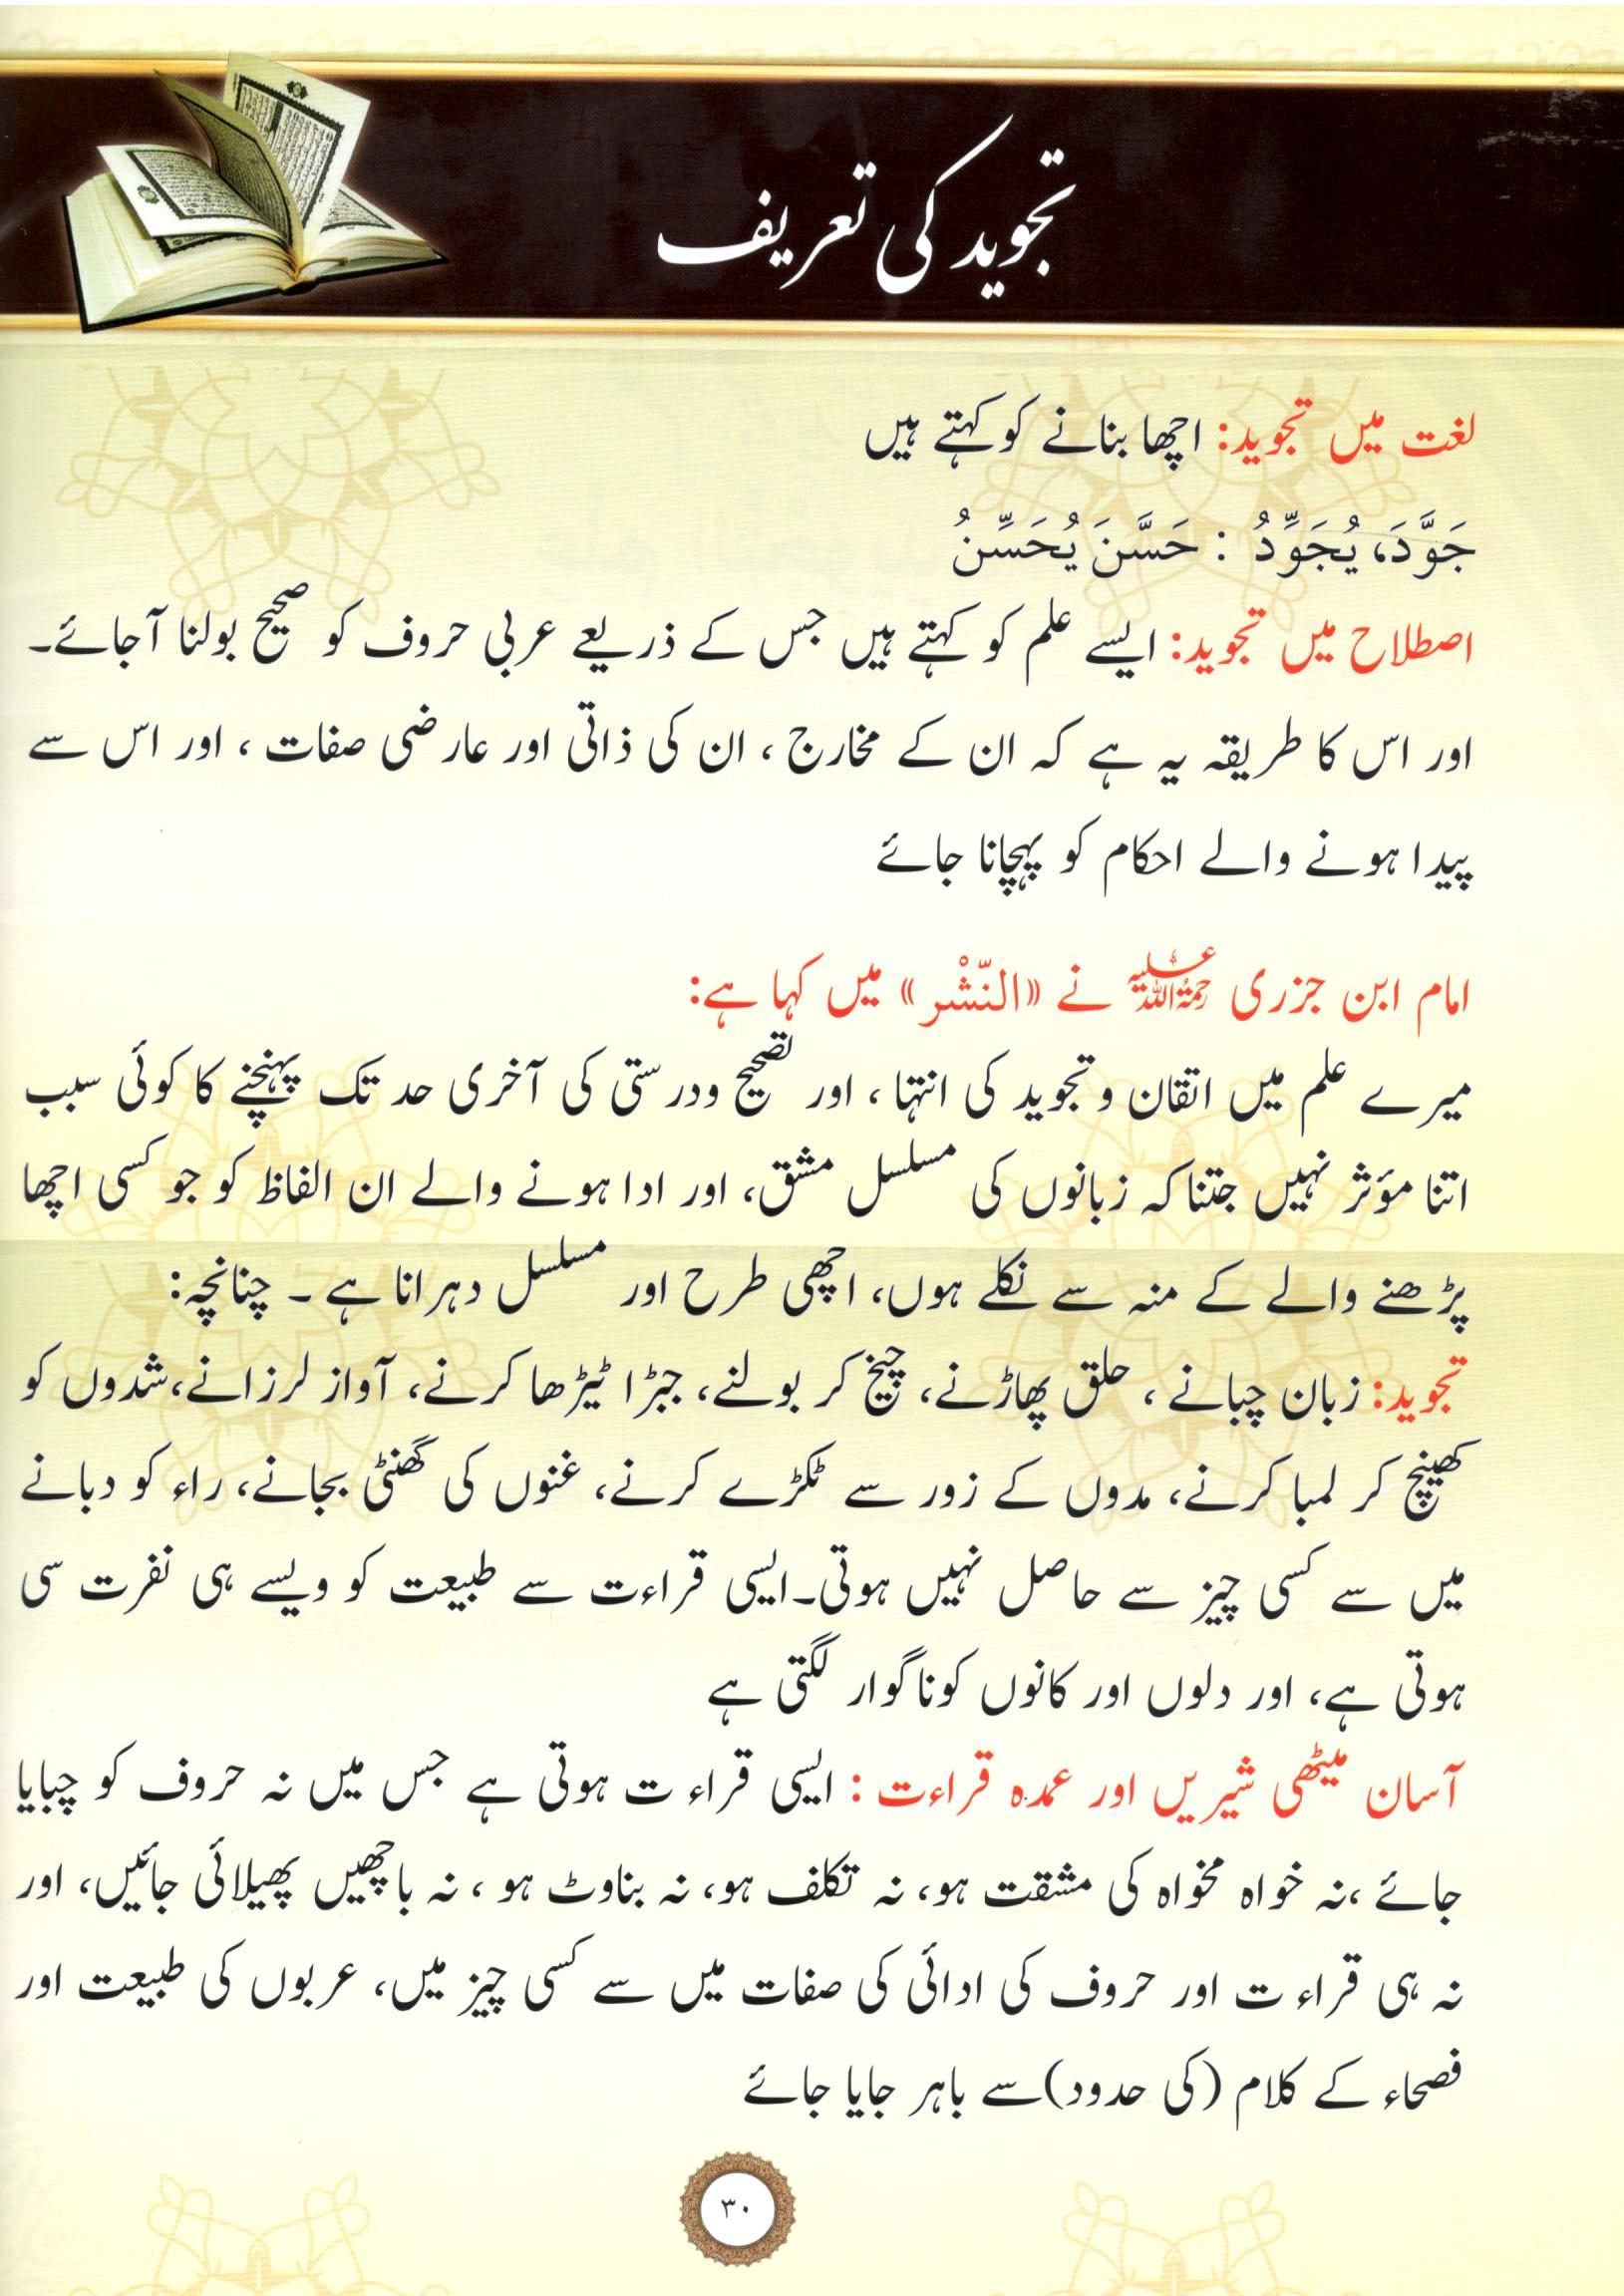 تجوید کی تعریف
لغت میں تجوید: اچھا بنانے کو کہتے ہیں
جَوَّدَ، يُجَوِّدُ : حَسَّنَ يُحَسِّنُ
اصطلاح میں تجوید: ایسے علم کو کہتے ہیں جس کے ذریعے عربی حروف کو صحیح بولنا آجائے۔
اور اس کا طریقہ یہ ہے کہ ان کے مخارج ، ان کی ذاتی اور عارضی صفات ، اور اس سے
پیدا ہونے والے احکام کو پہچانا جائے
امام ابن جزری رحمۃ اللہ علیہ نے «النَّشْر» میں کہا ہے:
میرے علم میں اتقان و تجوید کی انتہا ، اور تصحیح ودرستی کی آخری حد تک پہنچنے کا کوئی سبب
اتنا مؤثر نہیں جتنا کہ زبانوں کی مسلسل مشق، اور ادا ہونے والے ان الفاظ کو جو کسی اچھا
پڑھنے والے کے منہ سے نکلے ہوں، اچھی طرح اور مسلسل دہرانا ہے ۔ چنانچہ:
تجوید: زبان چبانے ، حلق پھاڑنے، چیخ کر بولنے، جبڑا ٹیڑھا کرنے، آواز لرزانے،شدوں کو
کھینچ کر لمبا کرنے، مدوں کے زور سے ٹکڑے کرنے، غنوں کی گھنٹی بجانے، راء کو دبانے
میں سے کسی چیز سے حاصل نہیں ہوتی۔ایسی قراءت سے طبیعت کو ویسے ہی نفرت سی
ہوتی ہے، اور دلوں اور کانوں کو ناگوار لگتی ہے
آسان میٹھی شیریں اور عمدہ قراءت : ایسی قراءت ہوتی ہے جس میں نہ حروف کو چبایا
جائے ،نہ خواہ مخواہ کی مشقت ہو، نہ تکلف ہو، نہ بناوٹ ہو ، نہ باچھیں پھیلائی جائیں، اور
نہ ہی قراءت اور حروف کی ادائی کی صفات میں سے کسی چیز میں، عربوں کی طبیعت اور
فصحاء کے کلام (کی حدود)سے باہر جایا جائے
۳۰